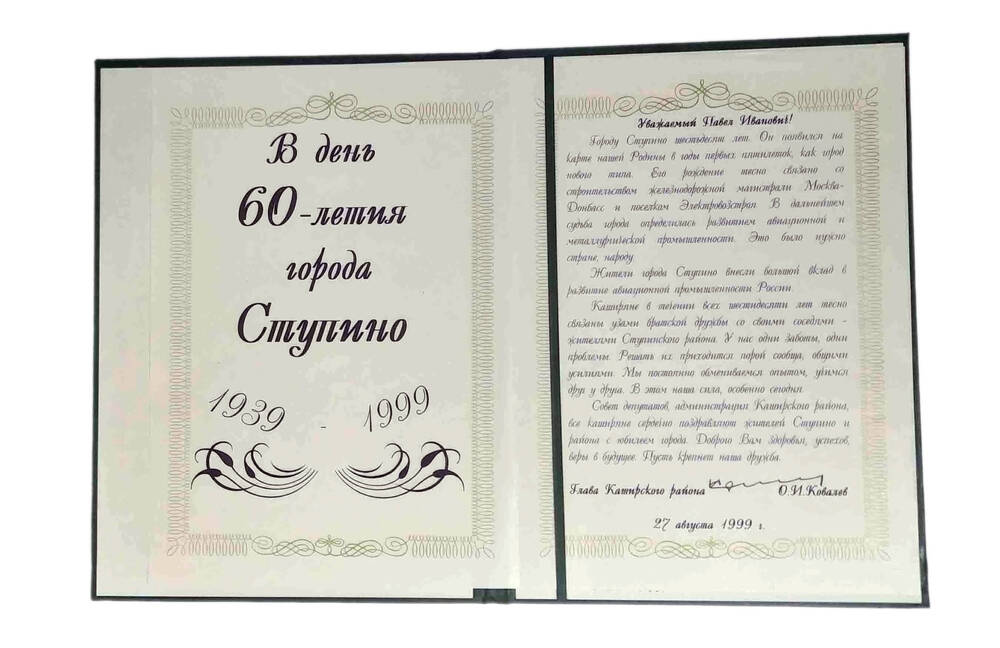 В день
60-летия
города
Ступино
1939 - 1999
Уважаемый Павел Иванович!
Городу Ступино шестьдесят лет. Он появился на
карте нашей Родины в годы первых пятилеток, как город
нового типа. Его рождение тесно связано со
строительством железнодорожной магистрали Москва-
Донбасс и поселком Электровозстроя. В дальнейшем
судьба города определилась развитием авиационной и
металлургической промышленности. Это было нужно
стране, народу.
Жители города Ступино внесли большой вклад в
развитие авиационной промышленности России.
Каширяне в течении всех шестидесяти лет тесно
связаны узами братской дружбы со своими соседями -
жителями Ступинского района. У нас одни заботы, одни
проблемы. Решать их приходится порой сообща, общими
усилиями. Мы постоянно обмениваемся опытом, учимся
друг у друга. В этом наша сила, особенно сегодня.
Совет депутатов, администрация Каширского района,
все каширяне сердечно поздравляют жителей Ступино и
района с юбилеем города. Доброго Вам здоровья, успехов,
веры в будущее. Пусть крепнет наша дружба.
Глава Каширского района О.И.Ковалев
27 августа 1999 г.